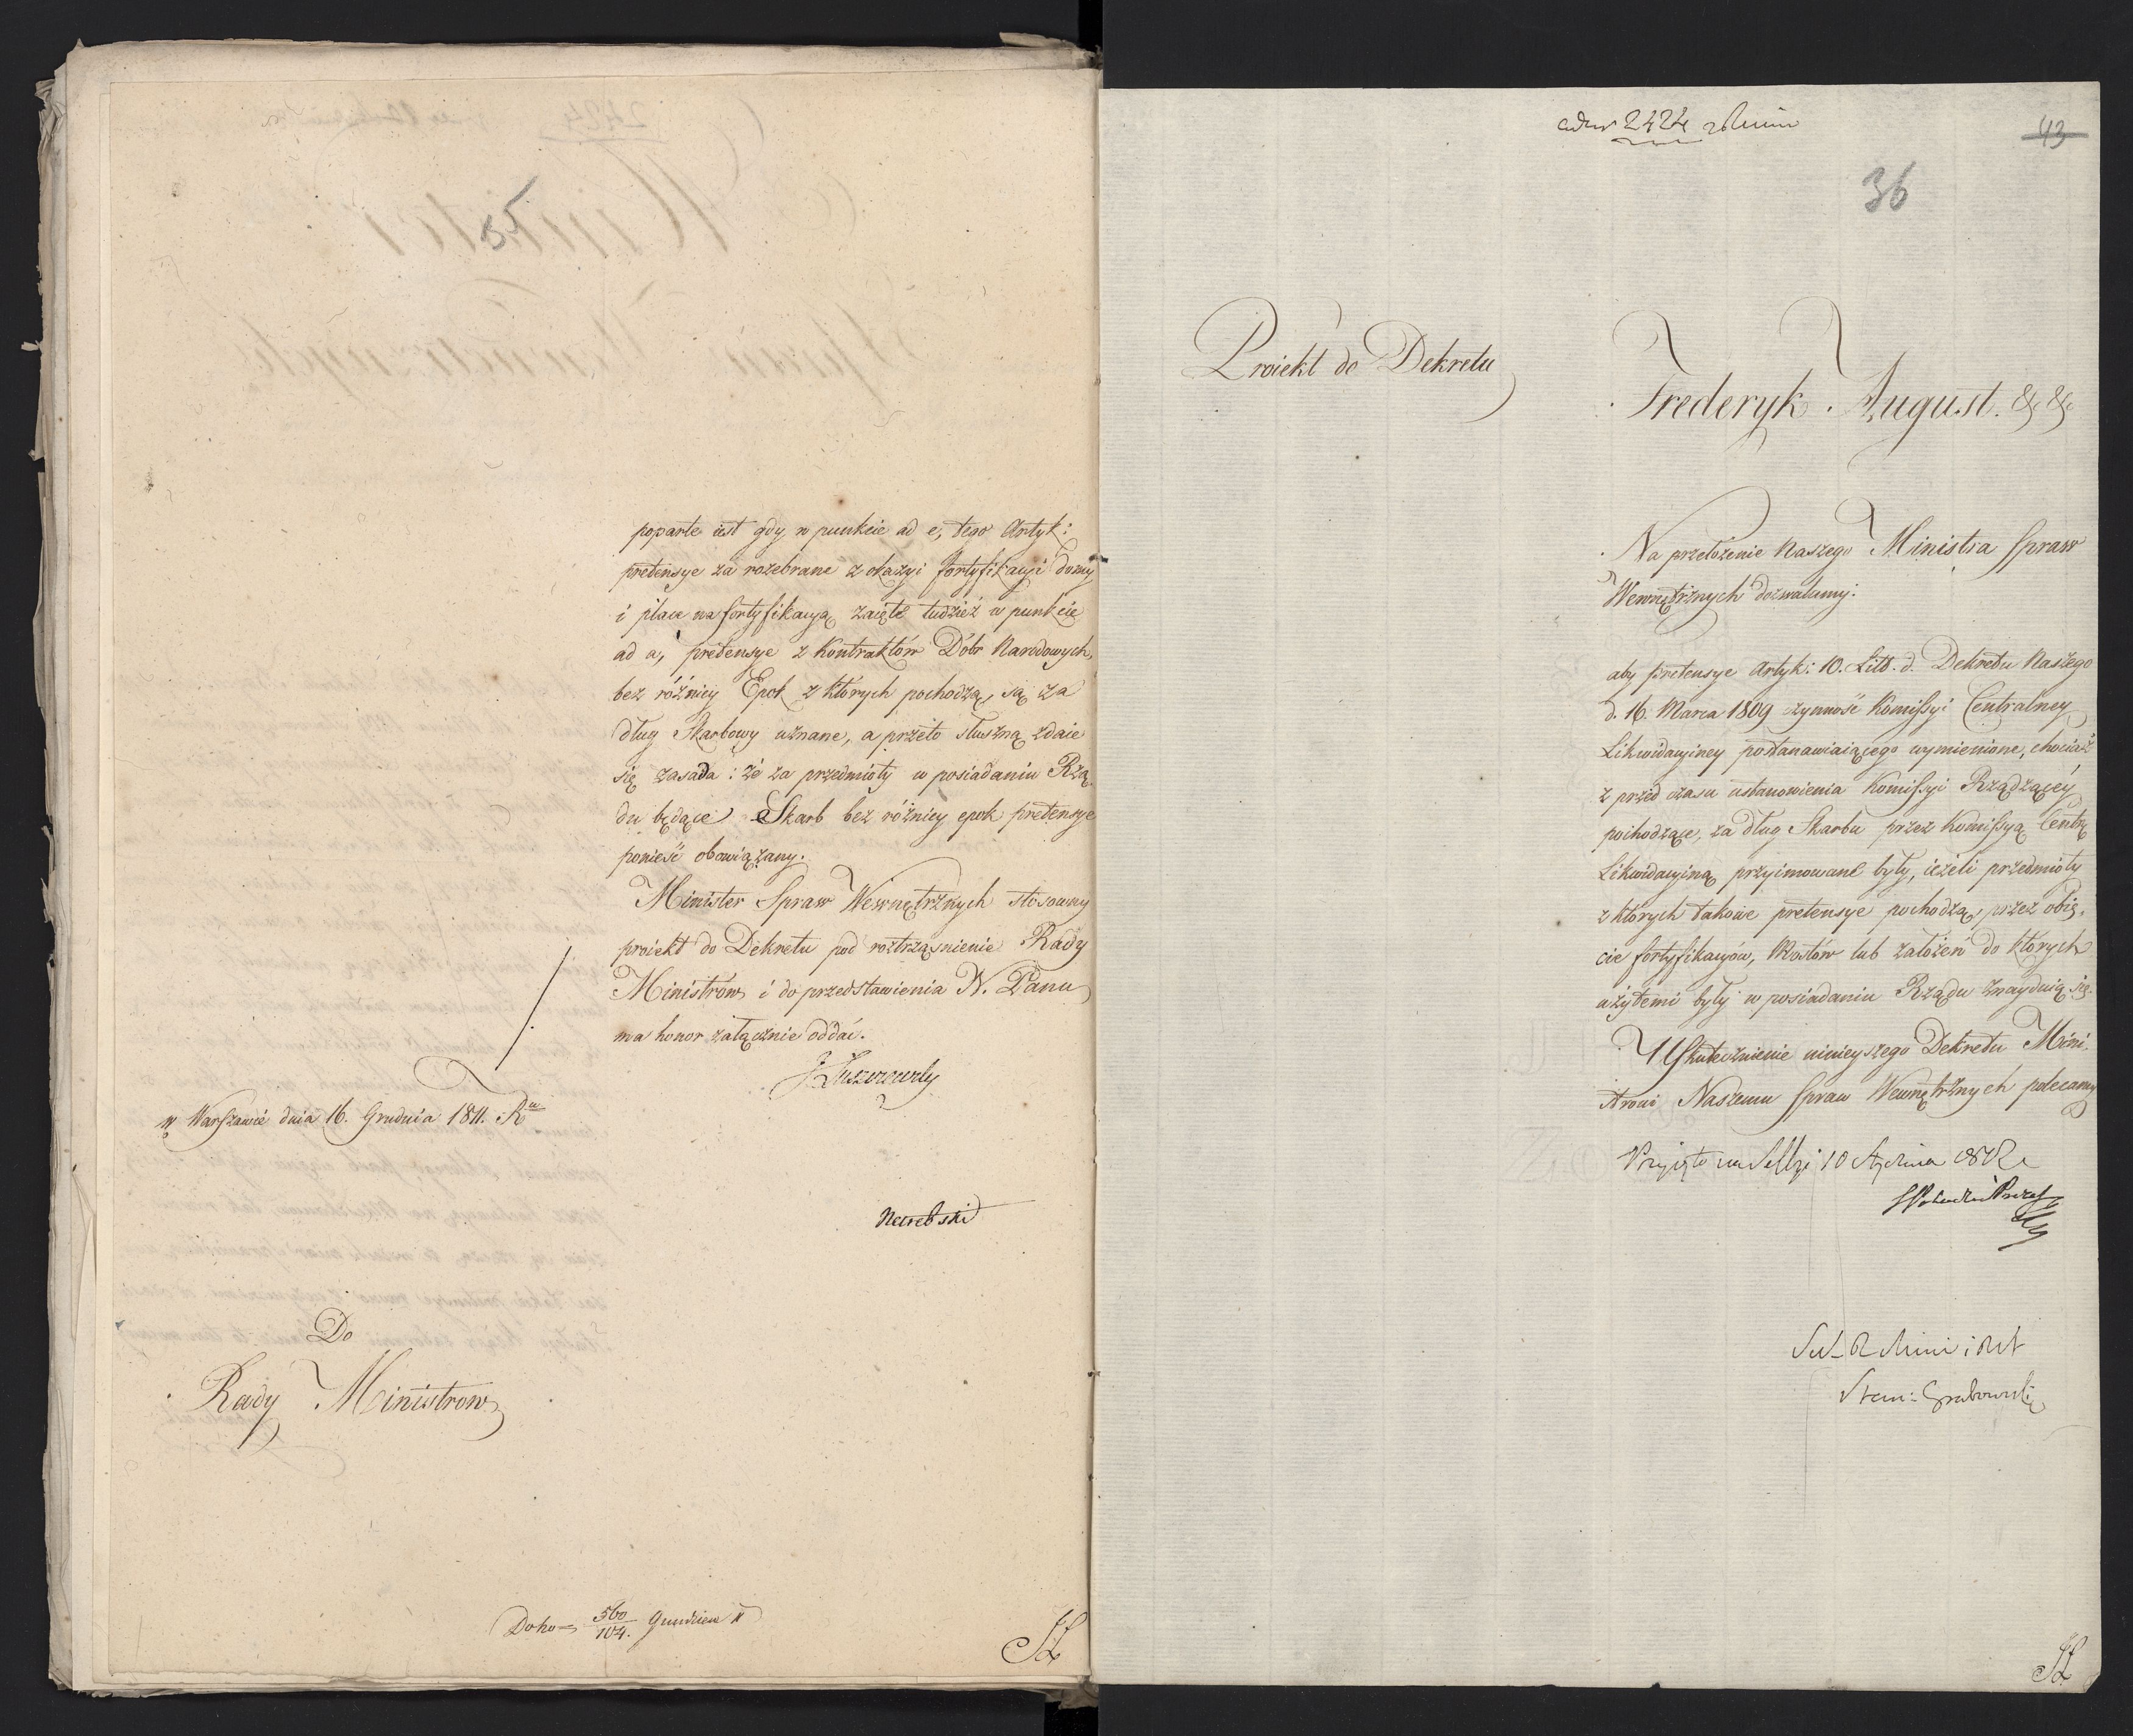 35
poparte iest gdy w punkcie ad e, tego Artyk:
pretensye za rozebrane z okazyi fortyfikacyi domy
i place na fortyfikacyą zaięte tudzież w punkcie
ad a, pretensye z Kontraktów Dóbr Narodowych,
bez różnicy Epok z których pochodzą, są za
dług Skarbowy uznane, a przeto słuszną zdaie
się zasada: że za przedmioty w posiadaniu Rzą,
du będące Skarb bez różnicy epok pretensye
ponieść obowiązany.
Minister Spraw Wewnętrznych stosowny
proiekt do Dekretu pod roztrząśnienie Rady
Ministrów i do przedstawienia N. Panu
ma honor załącznie oddać.
J Łuszczewski
w Warszawie dnia 16. Grudnia 1811. Ru
Do
Rady Ministrow
560
104. Grudzień 11
SL
2424
43
36
Proiekt do Dekretu
Frederyk August. & &
Na przełożenie Naszego Ministra Spraw
Wewnętrznych dozwalamy:
aby pretensye Artyk: 10. Litt. d. Dekretu Naszego
d. 16. Marca 1809 czynność Kommissyi Centralney
Likwidacyiney postanawiaiącego wymienione, chociaż
z przed czasu ustanowienia Komissyi Rządzącéy
pochodzące, za dług Skarbu przez Komissyą Centr
Likwidacyiną przyimowane były, ieżeli przedmioty
z których takowe pretensye pochodzą, przez obię,
cie fortyfikacyów, Mostów lub założeń do których
użytemi były w posiadaniu Rządu znayduią się.
Uskutecznienie ninieyszego Dekretu Mini,
strowi Naszemu Spraw Wewnętrznych polecamy
Przyięto na Sessyi 10 Stycznia 1812
Stan: Grabowski
SL